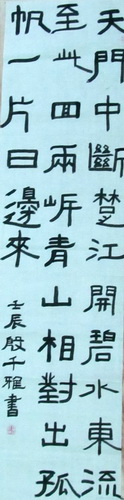 天門中斷楚江開碧水東流
至此回兩岸青山相對出孤
帆一片日邊來
壬辰殷千雅書